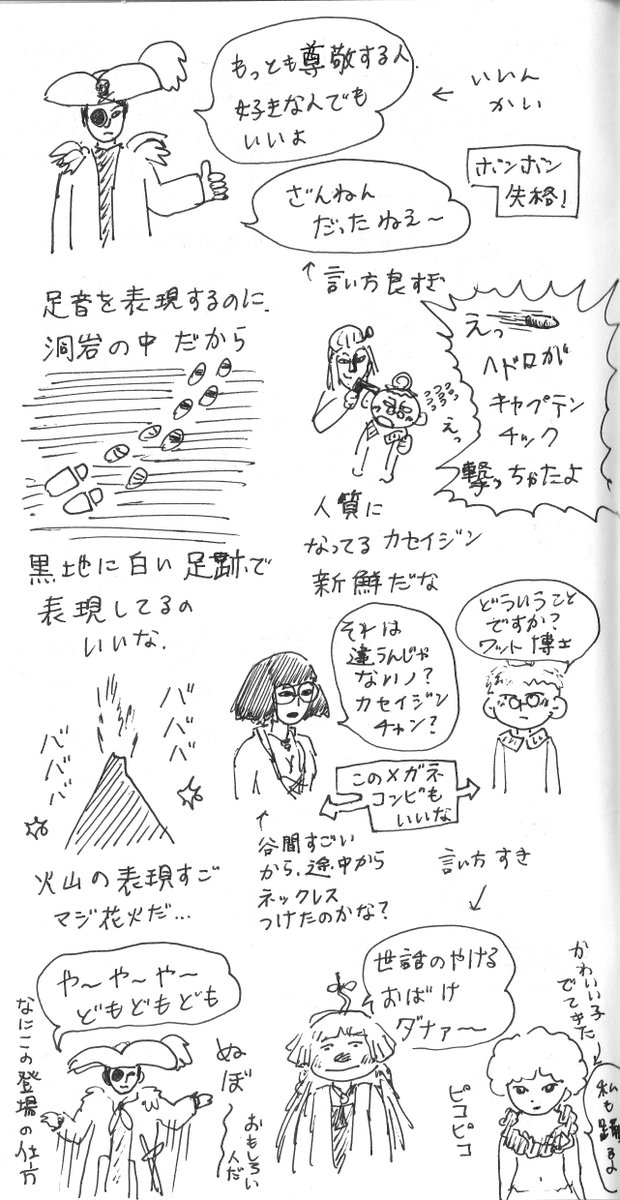 もっとも尊敬する人.
好きなんでも
いいよ
← いいん
かい
ボンボン
失格!
ざんねん
だったねえ〜
↑言い方良すぎ
足音を表現するのに、
洞岩の中だから
えっ
ヘドロが
キャプテン
チック
撃っちゃたよ
えっ
人質に
なってるカセイジン
新鮮だな
黒地に白い足跡で
表現してるの
いいな.
それは
違うんじゃ
ないノ?
カセイジン
チャン?
どういうこと
ですか?
ワット博士
ババババ
ババババ
このメガネ
コンビも
いいな
火山の表現すご
マジ花火だ…
↑
谷間すごい
から、途中から
ネックレス
つけたのかな?
言い方すき
や〜や〜や〜
どもどもども
なにこの登場の仕方
ぬぼ〜
おもしろい
人だ
世話のやける
おばけ
ダナァ〜
かわいい子
でてきた
私も踊るよ
ピコピコ